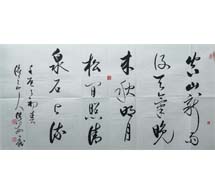 空山新雨
後天氣晚
来秋明月
松间照清
泉石上流